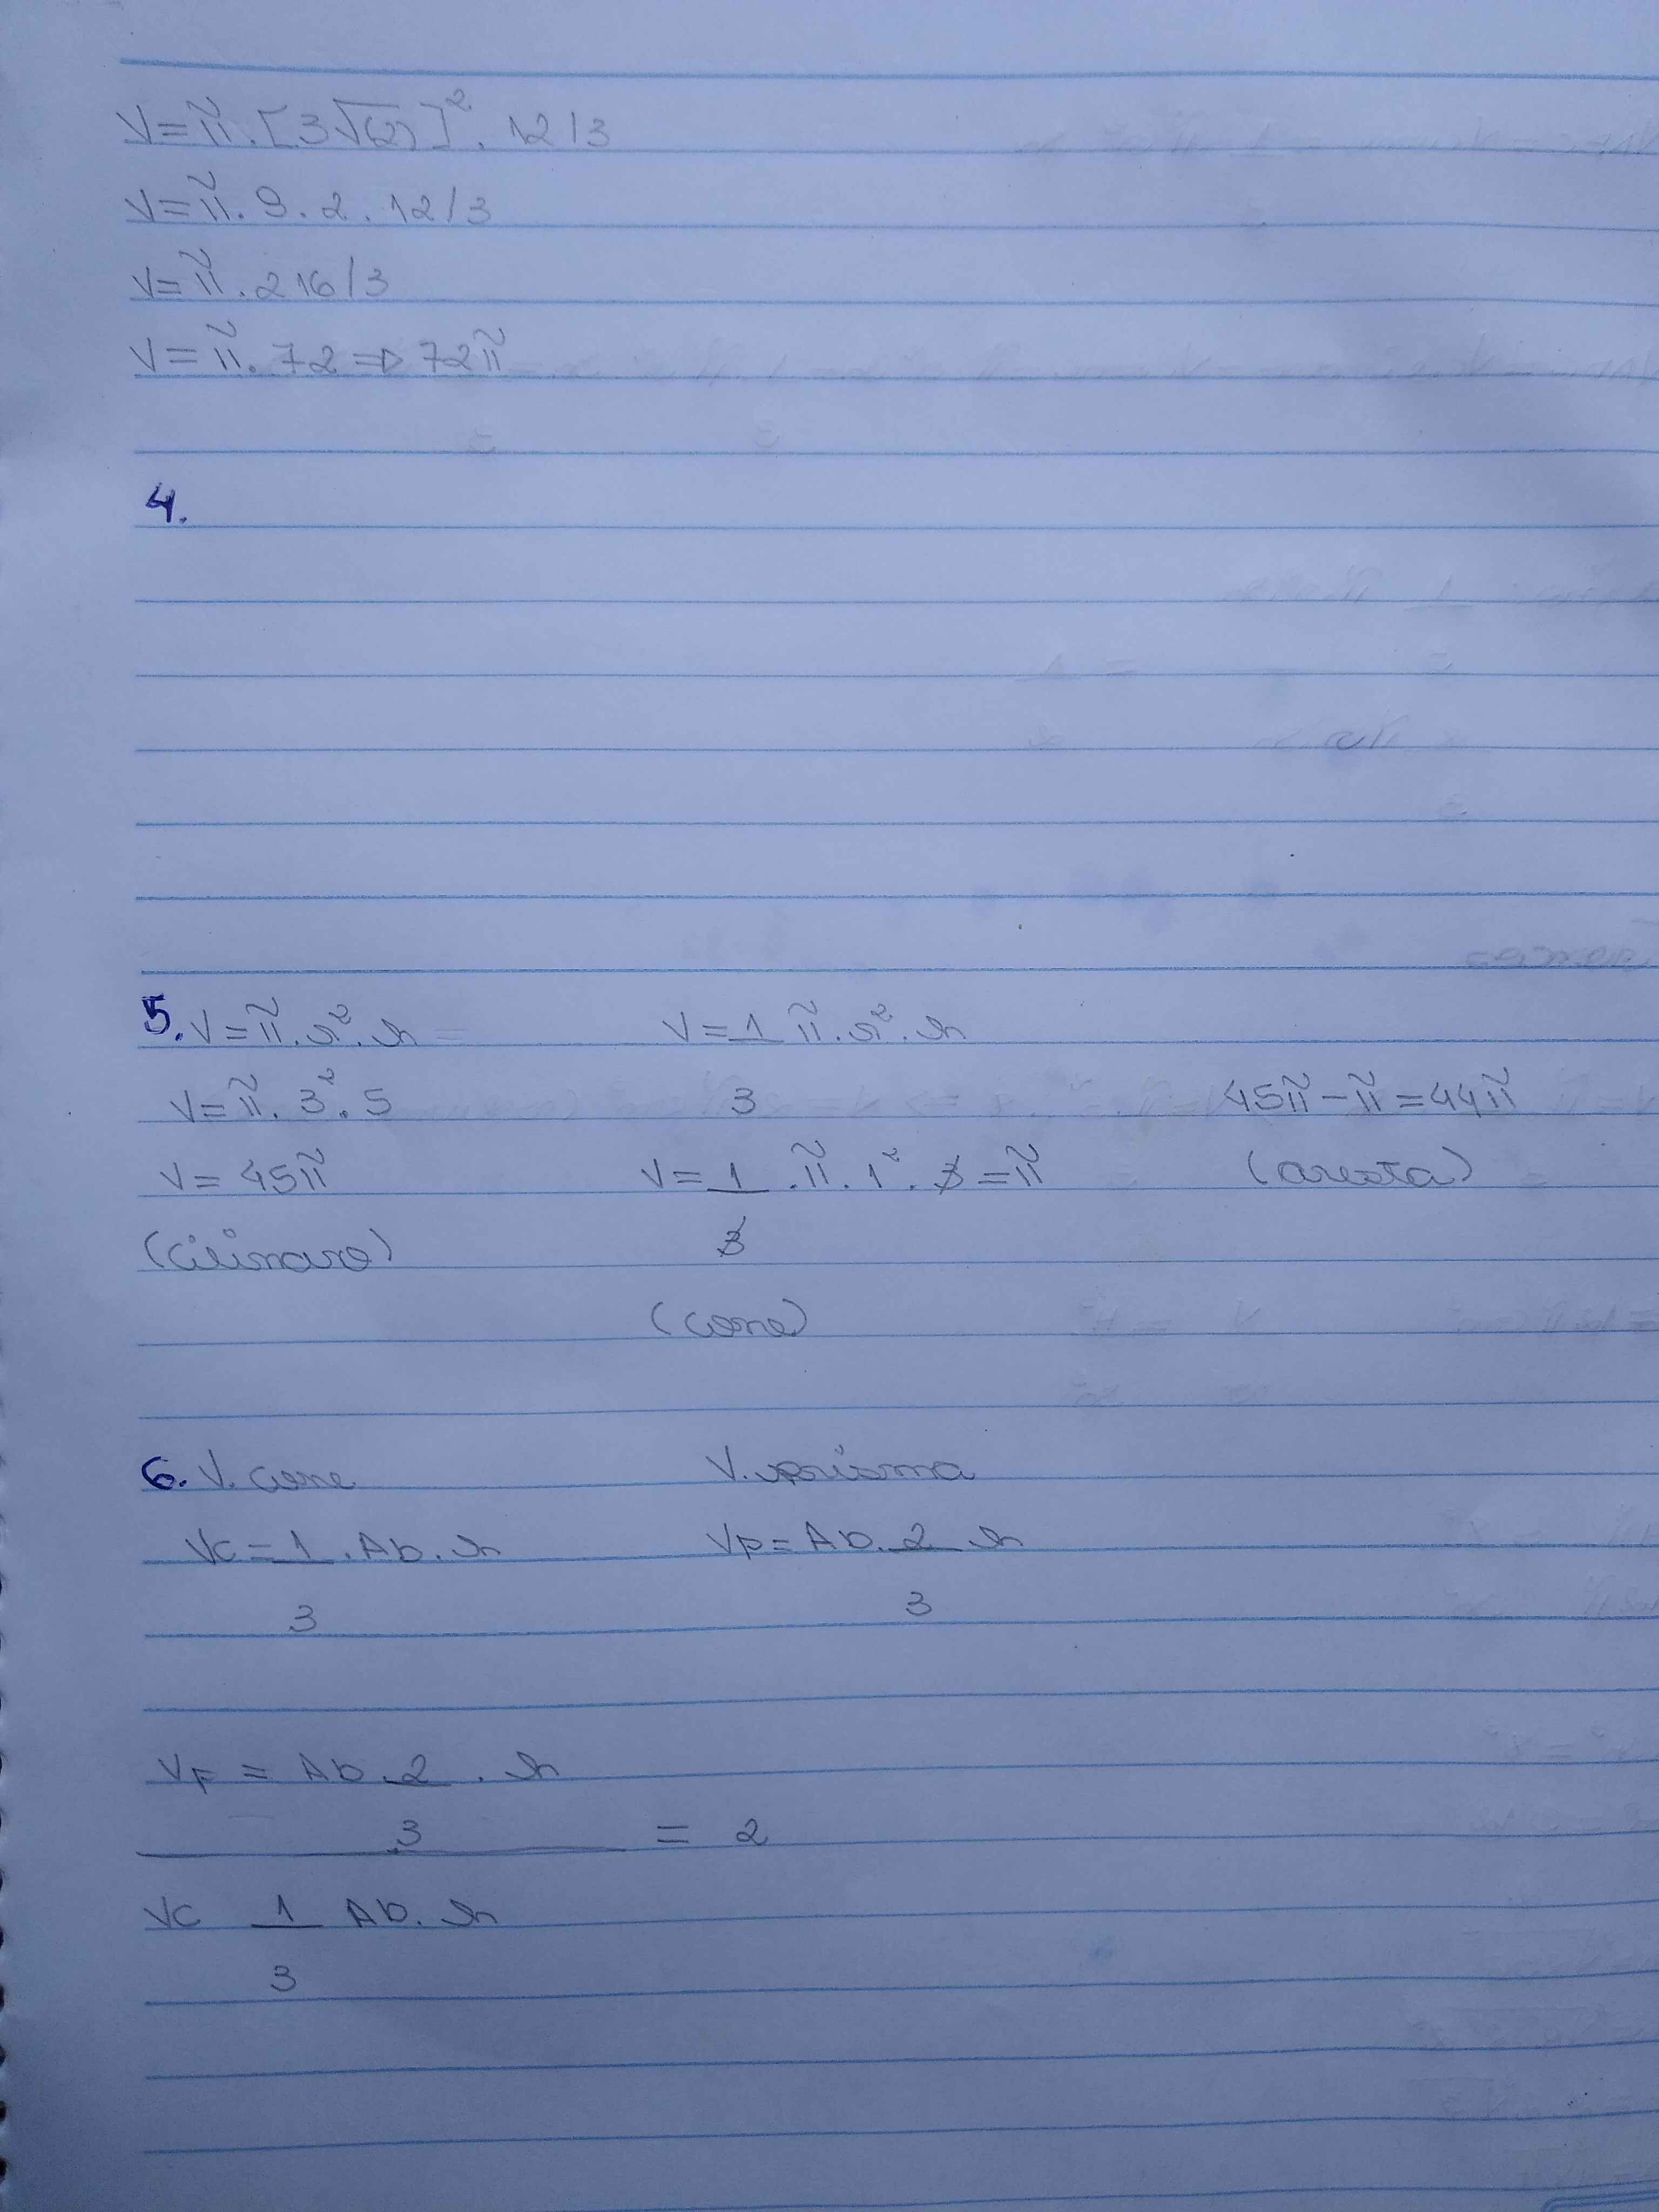 V = π . [3√(2)]² . 12/3
V = π . 9 . 2 . 12/3
V = π . 216/3
V = π . 72 => 72π
4.
5. V = π . r² . h
V = π . 3² . 5
V = 45π
(cilindro)
V = 1/3 π . r² . h
V = 1/3 . π . 1² . 3 = π
(cone)
45π - π = 44π
(aresta)
6. V. cone
Vc = 1/3 . Ab . h
V. prisma
Vp = Ab . 2/3 h
VF = Ab . 2/3 . h
= 2
Vc 1/3 Ab . h